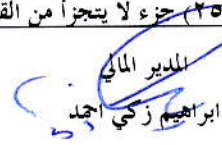 ٢٥) جزء لا يتجزأ من الق
المدير المالي
ابراهيم زكي احمد